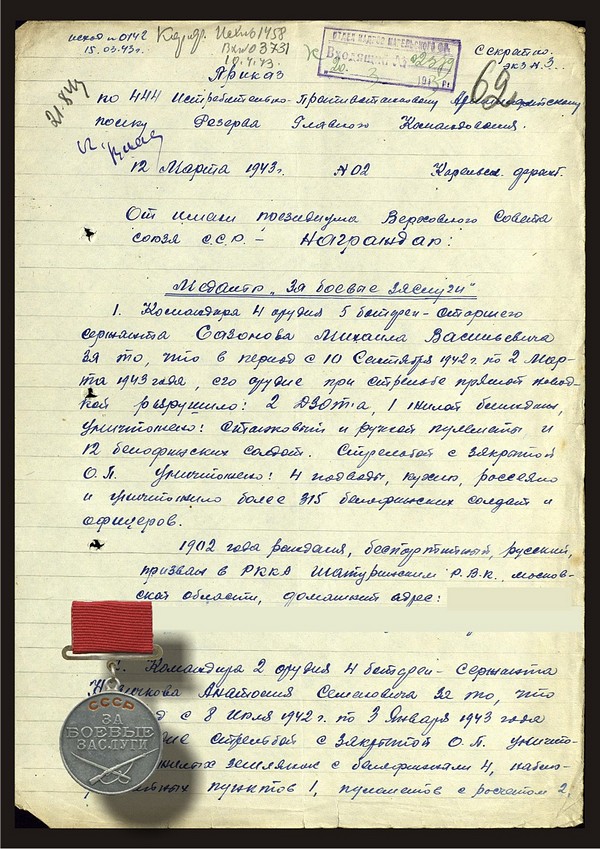 исход № 0142
15.03.43 г.
Кар.фр. Исх № 1458
Вх № 03731
19.4.43.
ОТДЕЛ КАДРОВ КАРЕЛЬСКОГО ФР.
Входящий №
20. 3 1943 г.
Секретно.
экз № 3
62
Приказ
по 444 Истребительно-Противотанковому Артиллерийскому
полку Резерва Главного Командования.
12 Марта 1943 г. № 02 Карельск. фронт.
От имени президиума Верховного Совета
союза С.С.Р. – Награждаю:
Медалью „За боевые заслуги"
1. Командира 4 орудия 5 батареи – Старшего
сержанта Сазонова Михаила Васильевича
за то, что в период с 10 Сентября 1942 г. по 2 Мар-
та 1943 года, его орудие при стрельбе прямой навод-
кой разрушило: 2 ДЗОТ-а, 1 жилой блиндаж,
уничтожено: станковый и ручной пулеметы и
12 белофинских солдат. Стрельбой с закрытой
О.П. уничтожено: 4 подводы, кухню, рассеяно
и уничтожило более 315 белофинских солдат и
офицеров.
1902 года рождения, беспартийный, русский,
призван в РККА Шатурским Р.В.К. москов-
ской области, домашний адрес:
Командира 2 орудия 4 батареи – Сержанта
Анатолия Семеновича за то, что
с 8 Июля 1942 г. по 3 Января 1943 года
стрельбой с закрытой О.П. уничто-
землянок с белофинами 4, наблю-
пунктов 1, пулеметов с расчетом 2,
СССР
ЗА
БОЕВЫЕ
ЗАСЛУГИ